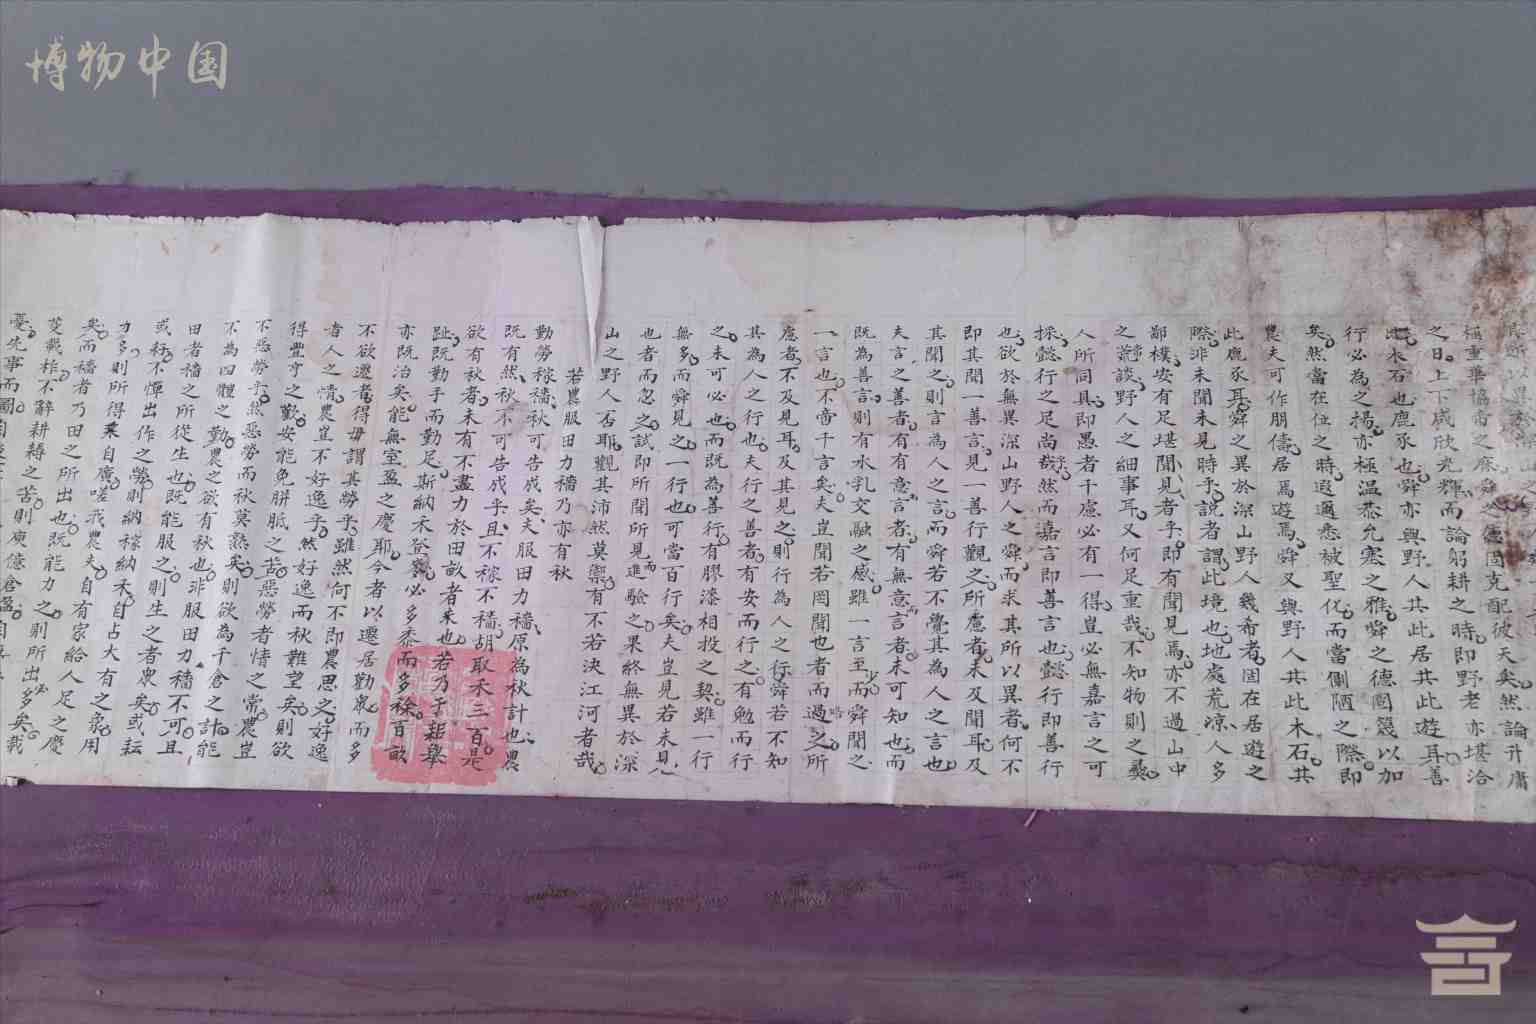 博物中国
極重華協帝之庥舜之德固克配彼天矣然論升庸
之日上下咸欣光輝而論躬耕之時即野老亦堪洽
此木石也鹿豕也舜亦與野人共此居共此遊耳善
行必為之揚亦極温恭允塞之雅舜之德圈篾以加
矣然當在位之時遐邇悉被聖化而當側陋之際即
農夫可作朋儔居焉遊焉舜又與野人共此木石共
此鹿豕耳舜之異於深山野人幾希者固在居遊之
際非未聞未見時乎說者謂此境也地處荒凉人多
鄙樸安有足堪聞見者乎即有聞見焉亦不過山中
之談野人之細事耳又何足重哉不知物則之彝
人所同具即愚者千慮必有一得豈必無嘉言之可
採懿行之足尚哉然而嘉言即善言也懿行即善行
也欲於無異深山野人之舜而求其所以異者何不
即其聞一善言見一善行觀之所慮者未及聞耳及
其聞之則言為人之言而舜若不覺其為人之言也
夫言之善者有有意言者有無意言者未可知也而
既為善言則有水乳交融之感雖一言至而舜聞之
一言也不啻千言矣夫豈聞若罔聞也者而過之所
慮者不及見耳及其見之則行為人之行舜若不知
其為人之行也夫行之善者有安而行之有勉而行
之未可必也而既為善行有膠漆相投之契雖一行
無多而舜見之一行也可當百行矣夫豈見若未見
也者而忽之試即所聞所見而進驗之果終無異於深
山之野人否耶觀其沛然莫禦有不若決江河者哉
若農服田力穡乃亦有秋
勤勞稼穡秋可告成矣夫服田力穡原為秋計也農
既有然秋不可告成乎且不稼不穡胡取禾三百是
欲有秋者未有不盡力於田畝者來也若乃于耜舉
趾既勤手而勤足斯納禾登必多黍而多稌百畝
亦既治矣能無室盈之慶耶今者以遷居勸衆而多
不欲遷者得毋謂其勞乎雖然何不即農思之好逸
者人之情農豈不好逸乎然好逸而秋難望矣則欲
得豐亨之歡安能免胼胝之苦惡勞者情之常農豈
不惡勞乎然惡勞而秋莫熟矣則欲為千倉之計能
不為四體之勤農之欲有秋也非服田力穡不可且
田者穡之所從生也既能服之則生之者衆矣或耘
或耔不憚出作之勞則納稼納禾自占大有之象用
力多則所得乘自廣嗟我農夫自有家給人足之慶
矣而穡者乃田之所出也既能力之則所出必多矣載
芟載柞不辭耕耨之苦則庾億倉盈自
憂先事而圖自